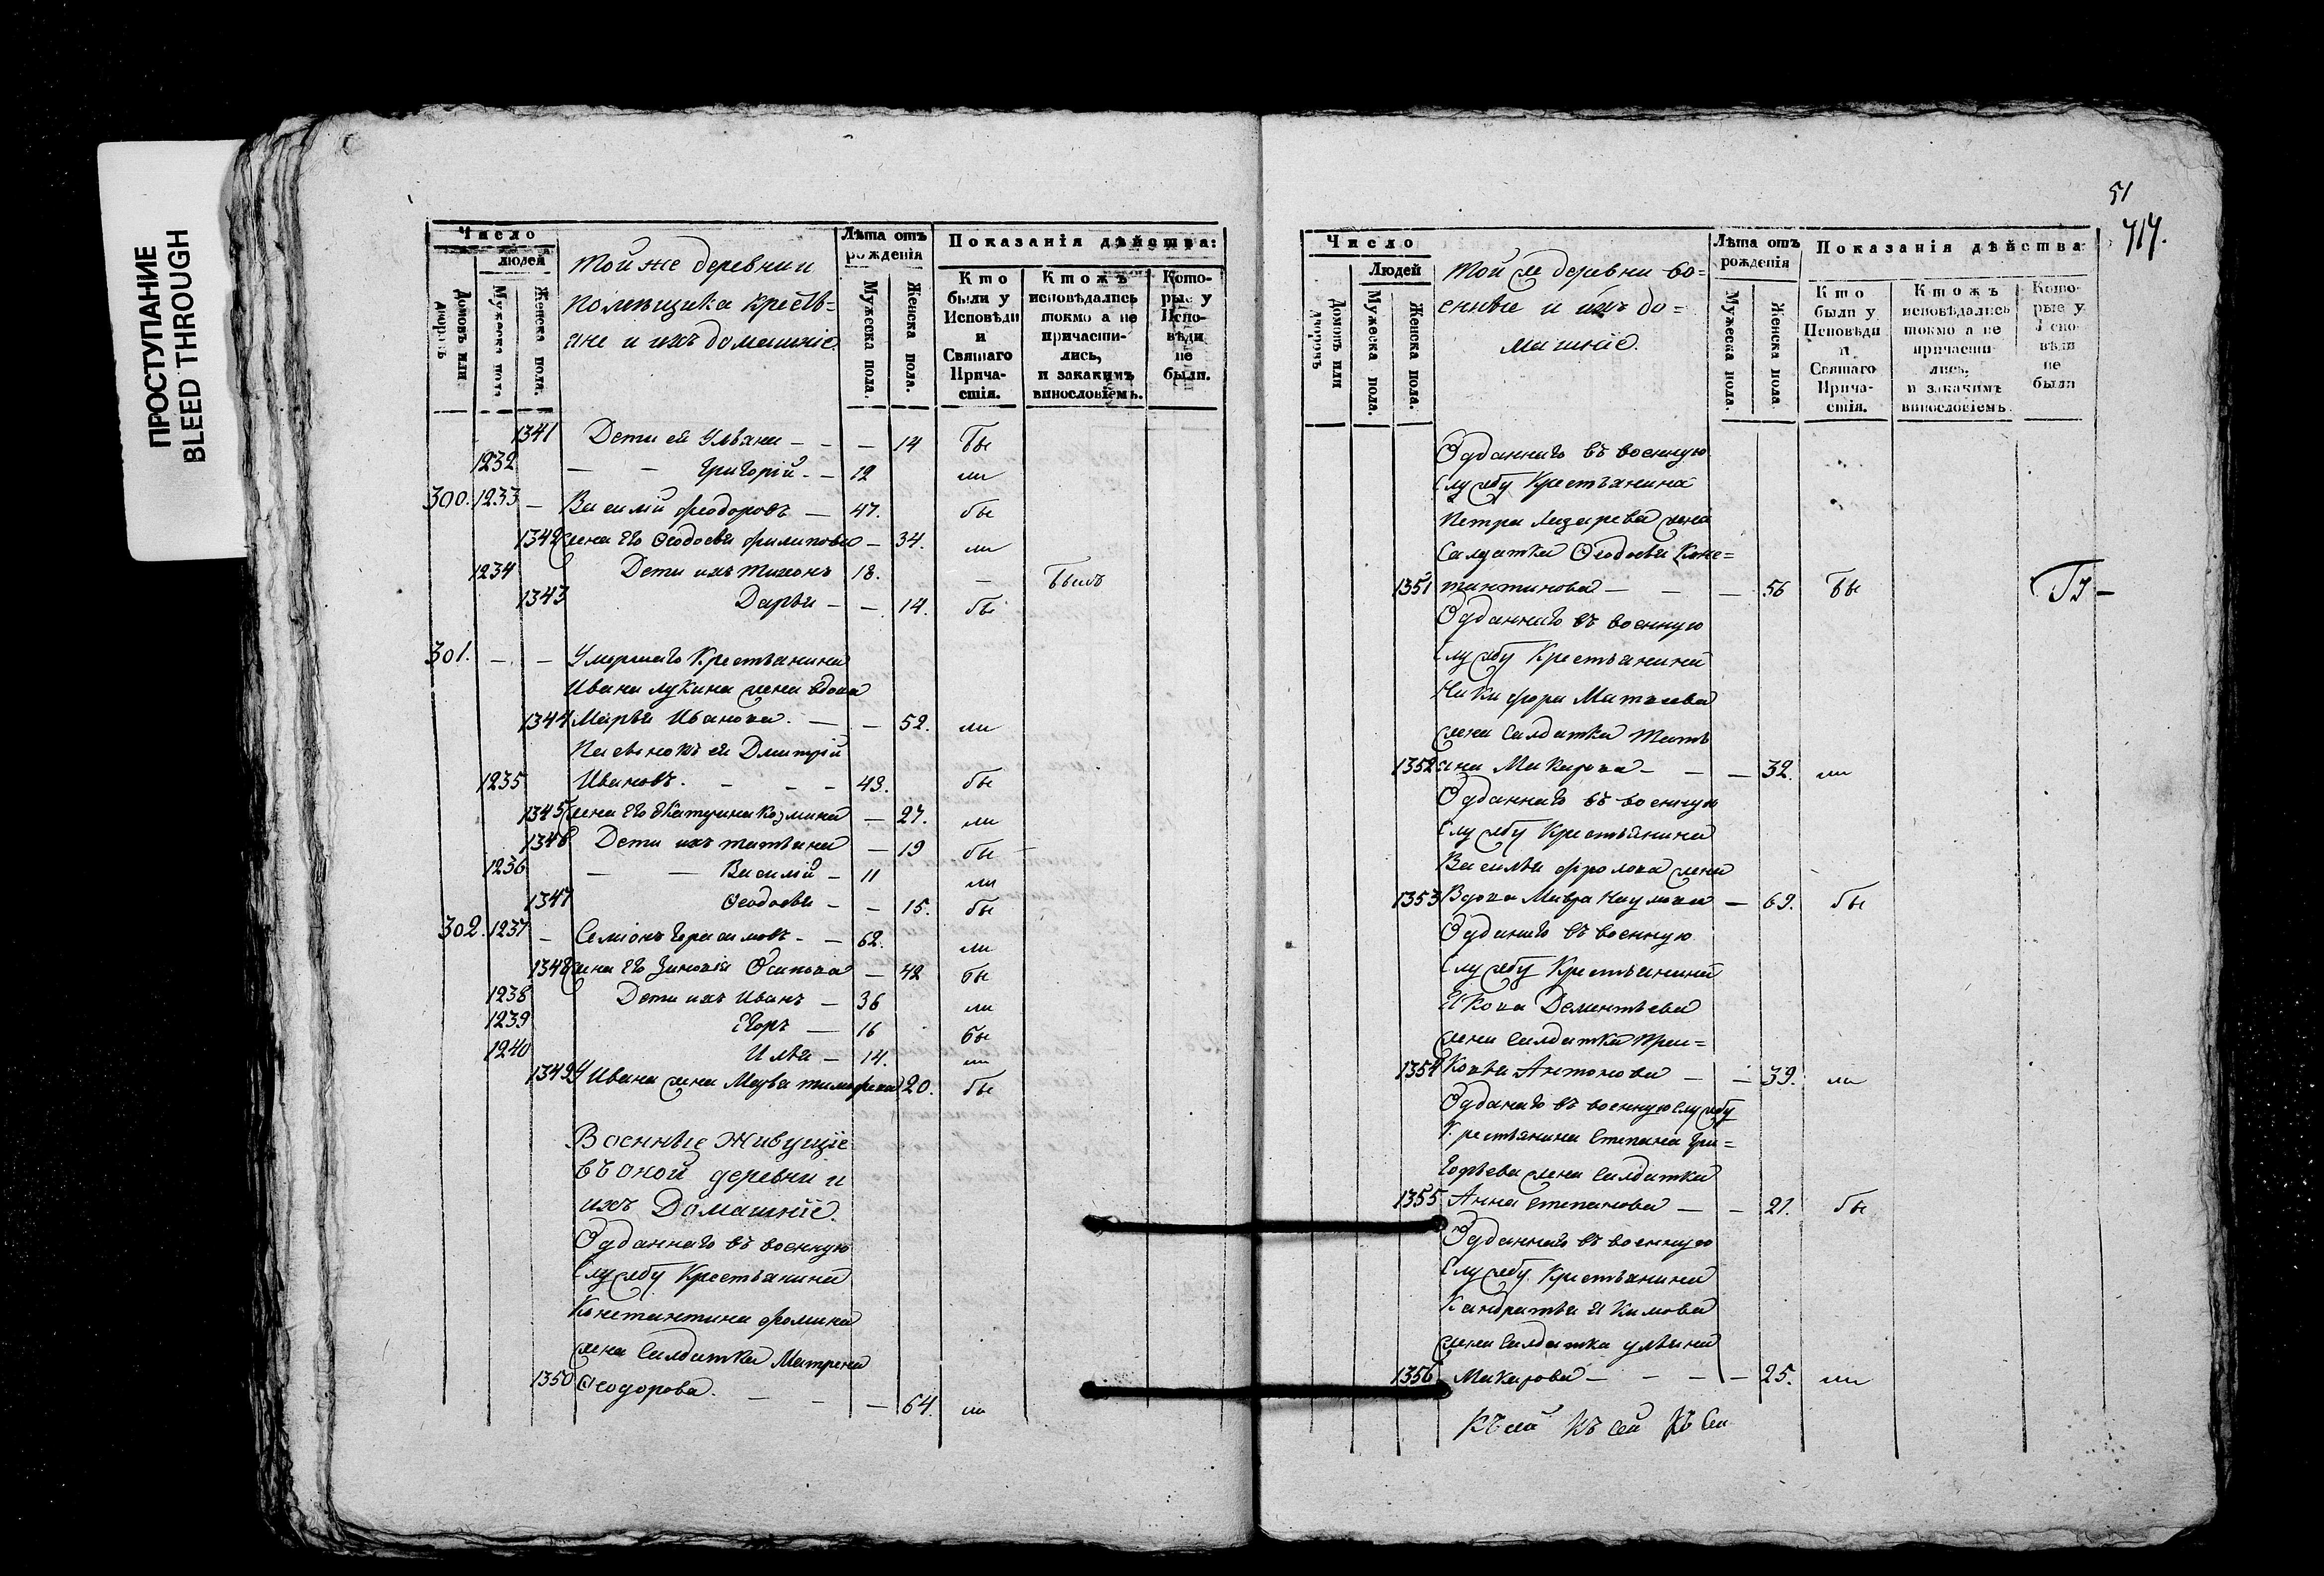 ПРОСТУПАНИЕ
BLEED THROUGH
Число
людей
Домовъ или дворовъ
Мужеска пола
Женска пола.
Той же деревни и
помѣщика крестья-
не и ихъ домашніе.
Лѣта отъ рожденія
Мужеска пола.
Женска пола.
Показанія дѣйства:
Кто были у Исповѣди и Святаго Прича- стія.
Ктожъ исповѣдались токмо а не причасти- лись, и закакимъ винословіемъ.
Кото- рые у Испо- вѣди не были.
1341 Дети ея Ульяна - - - 14 бы
1232 - - Григорій - - 12 ли
300. 1233 - Василій Феодоровъ - 47. бы
1342 жена его Феодосья Филипова - 34. ли
1234 Дети ихъ Тихонъ 18. - былъ
1343 Дарья - - 14. бы
301. - - Умершаго Крестьянина
Ивана Лукина жена вдова
1344 Марья Иванова. - - 52. ли
Пасынокъ ея Дмитрій
1235 Ивановъ. - - - 43. бы
1345 жена его Екатерина Козмина - 27. ли
1346 Дети ихъ Татьяна - 19 бы
1236 - - Василій - 11 ли
1347 Феодосья - - 15. бы
302. 1237 - Семіонъ Герасимовъ - - 62. ли
1348 жена его Зиновія Осипова - 42 бы
1238 Дети ихъ Иванъ - 36 ли
1239 Егоръ - 16 бы
1240 Илья - 14. ли
1349 У Ивана жена Мавра Тимофеева 20. бы
Военные живущіе
въ оной деревни и
ихъ Домашніе.
Отданнаго въ военную
службу Крестьянина
Константина Фомина
жена Салдатка Матрена
1350 Феодорова. - - - 64. ли
51
717.
Число
Людей
Домовъ или дворовъ
Мужеска пола.
Женска пола.
Той же деревни во=
енные и ихъ до=
машніе.
Лѣта отъ рожденія
Мужеска пола.
Женска пола
Показанія дѣйства
Кто были у Исповѣди и Святаго Прича- стія.
Ктожъ исповѣдались токмо а не причасти лись, и закакимъ винословіемъ
Кото- рые у Испо- вѣди не были
Отданнаго въ военную
службу Крестьянина
Петра Лазарева жена
Салдатка Феодосья Конс=
1351 тантинова - - - 56 бы
Отданнаго въ военную
службу Крестьянина
Никифора Матвеева
жена Салдатка Тать
1352 яна Макарова - - - 32. ли
Отданнаго въ военную
службу Крестьянина
Василья Фролова жена
1353 Вдова Мавра Наумова - 69. бы
Отданаго въ военную
службу Крестьянина
Якова Дементьева
жена Салдатка Прас=
1354 ковья Антонова - - 39. ли
Отданаго въ военную службу
Крестьянина Степана Гри=
горьева жена Салдатка
1355 Анна Степанова - - 21. бы
Отданнаго въ военную
службу Крестьянина
Кандратья Якимова
жена Салдатка Ульяна
1356 Макарова - - - - 25. ли
Къ сей Къ сей Къ сей